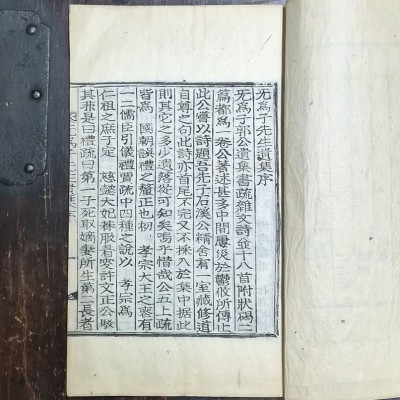 无爲子先生遺集序
无爲子郭公遺集書疏雜文詩並十八首附狀碣二
篇都爲一卷公著述甚多中間屢災於鬱攸所傳止
此公嘗以詩題吾先子石溪公精舍有一室藏修道
自尊之句此詩亦有首尾不完又不採入於集中據此
則其它之多少遺落從可知矣嗚乎惜哉公五上疏
皆爲 國朝誤禮之釐正也初 孝宗大王之喪有
一二儒臣引儀禮賈疏中四種之說以 孝宗爲
仁祖之庶子定 慈懿大妃朞服着麥許文正公駁
其非是曰禮疏曰第一子死取嫡妻所生第二長者